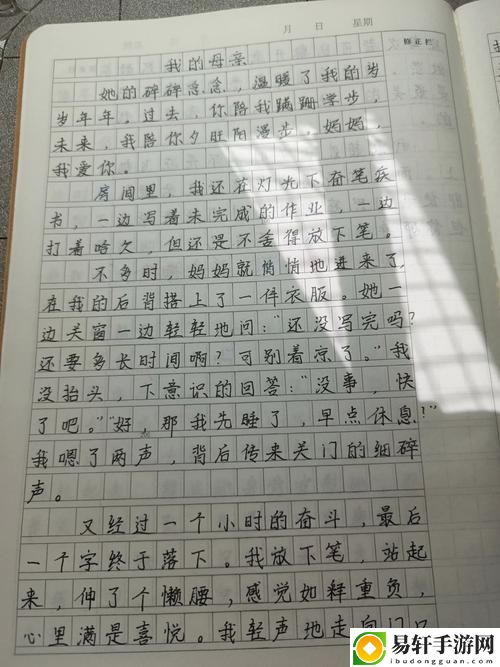 月 日 星期
修正栏
我的母亲
她的碎碎念念，温暖了我的岁
岁年年。过去，你陪我蹒跚学步，
未来，我陪你夕阳漫步，妈妈，
我爱你。
房间里，我还在灯光下奋笔疾
书，一边写着未完成的作业，一边
打着哈欠，但还是不舍得放下笔。
不多时，妈妈就悄悄地进来了，
在我的后背搭上了一件衣服。她一
边关窗一边轻轻地问：“还没写完吗？
还要多长时间啊？可别着凉了。”我
没抬头，下意识的回答：“没事，快
了吧。”“好，那我先睡了，早点休息！”
我嗯了两声，背后传来关门的细碎
声。
又经过一个小时的奋斗，最后
一个字终于落下。我放下笔，站起
来，伸了个懒腰，感觉如释重负，
心里满是喜悦。我轻声地走向门口
易轩手游网
ibudongguan.com